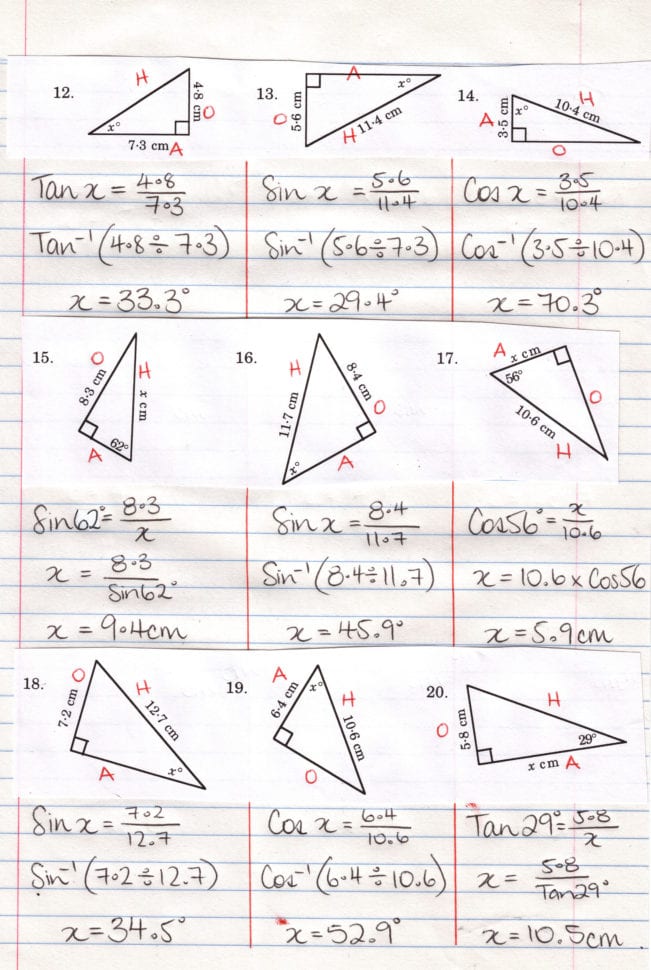 12.
H
4·8 cm
O
x°
7·3 cm
A
13.
A
x°
O
5·6 cm
H
11·4 cm
14.
H
10·4 cm
A
3·5 cm
x°
O
Tan x = 4.8/7.3
Tan⁻¹(4.8 ÷ 7.3)
x = 33.3°
Sin x = 5.6/11.4
Sin⁻¹(5.6 ÷ 7.3)
x = 29.4°
Cos x = 3.5/10.4
Cos⁻¹(3.5 ÷ 10.4)
x = 70.3°
15.
O
8·3 cm
H
x cm
62°
A
16.
H
11·7 cm
8·4 cm
O
x°
A
17.
A
x cm
56°
O
10·6 cm
H
Sin62° = 8.3/x
x = 8.3/Sin62°
x = 9.4cm
Sin x = 8.4/11.7
Sin⁻¹(8.4 ÷ 11.7)
x = 45.9°
Cos56° = x/10.6
x = 10.6 x Cos56
x = 5.9cm
18.
O
7·2 cm
H
12·7 cm
A
x°
19.
A
6·4 cm
x°
H
10·6 cm
O
20.
H
O
5·8 cm
29°
x cm
A
Sin x = 7.2/12.7
Sin⁻¹(7.2 ÷ 12.7)
x = 34.5°
Cos x = 6.4/10.6
Cos⁻¹(6.4 ÷ 10.6)
x = 52.9°
Tan 29° = 5.8/x
x = 5.8/Tan29°
x = 10.5cm